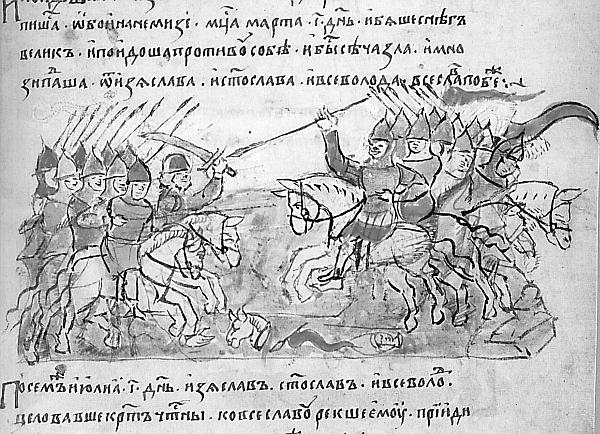 пиша. ѿ вои на немизѣ. мц҃а марта. г҃. дн҃ь. и бѧше снѣгъ
великъ. и поидоша противоу собѣ. и бы сѣча зла. и мно
зи падаша. ѿ изѧслава. и ст҃ослава. и всеволода. всеслав побѣ:
По семъ июлиа. г҃. дн҃ь. изѧславъ. ст҃ославъ. и всеволо
целовавше крт҃ъ чт҃ны. ко всеславоу рекше емоу. прииди